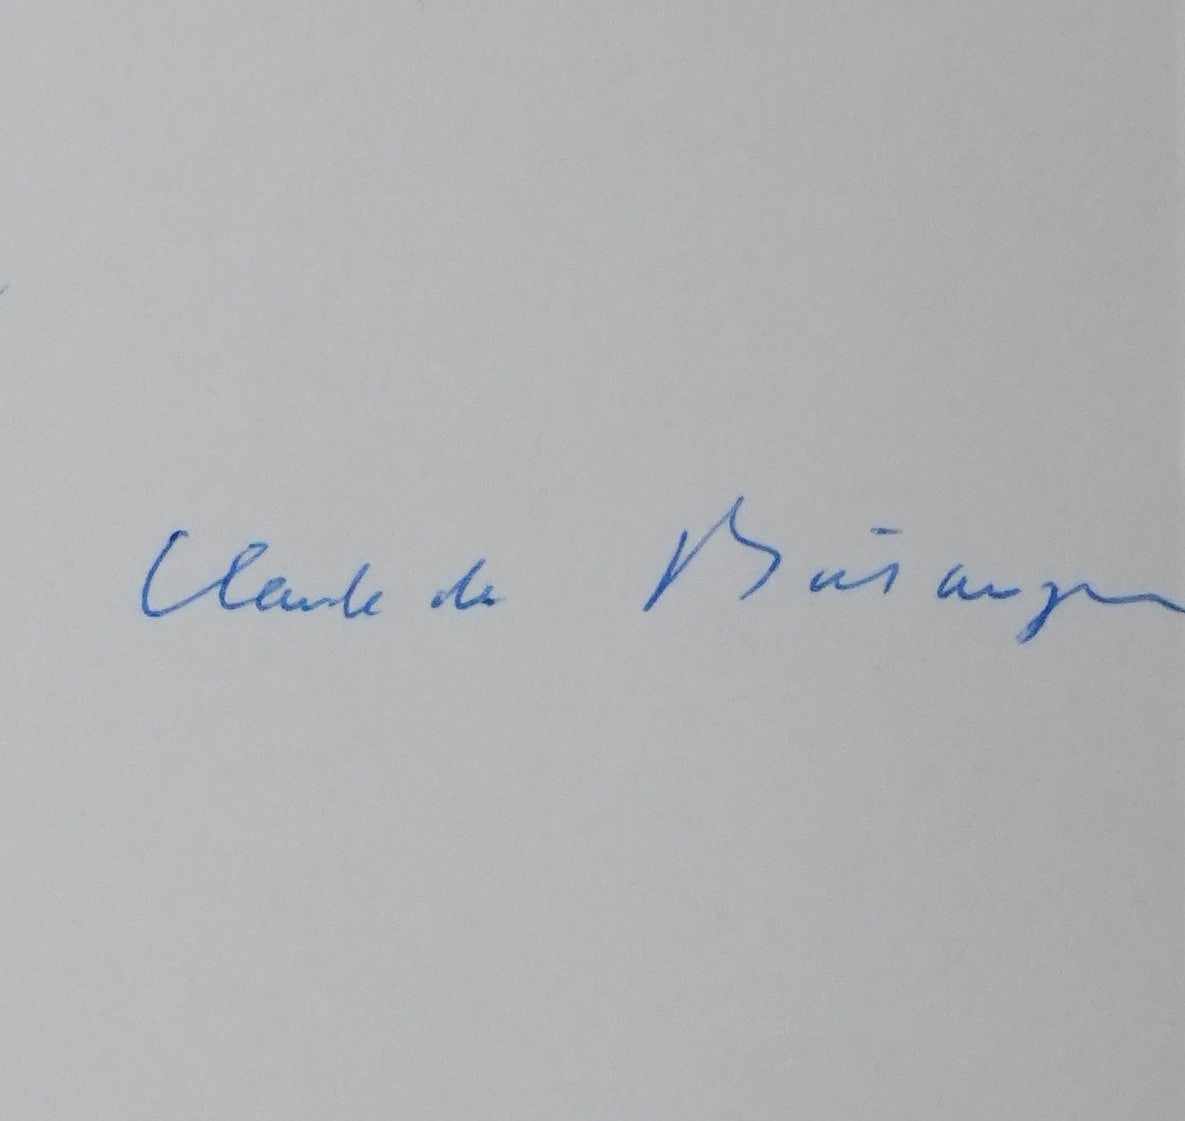 Claude de Boisanger